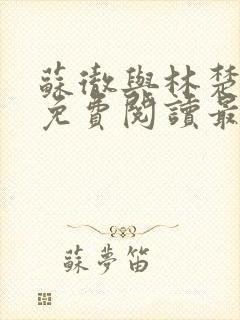 蘇徹與林楚
免費閱讀最
蘇夢笛